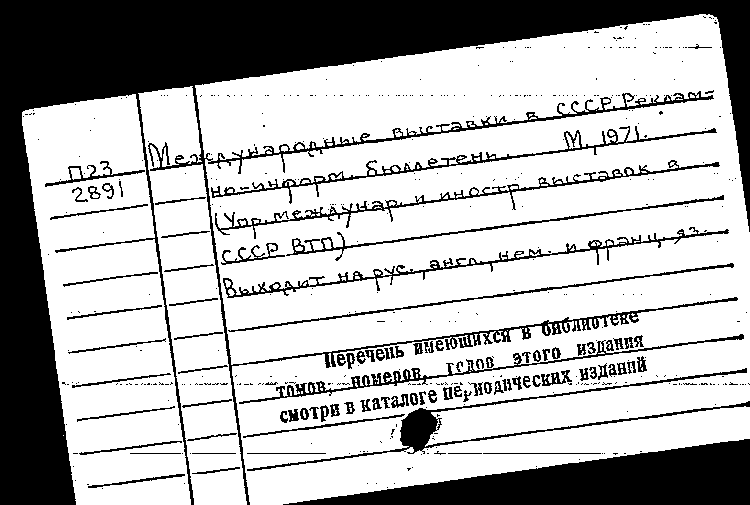 П23
2891
Международные выставки в СССР. Реклам-
но-информ. бюллетень. М., 1971.
(Упр. междунар. и иностр. выставок в
СССР ВТП)
Выходит на рус., англ., нем. и франц. яз.
Перечень имеющихся в библиотеке
томов, номеров, годов этого издания
смотри в каталоге периодических изданий